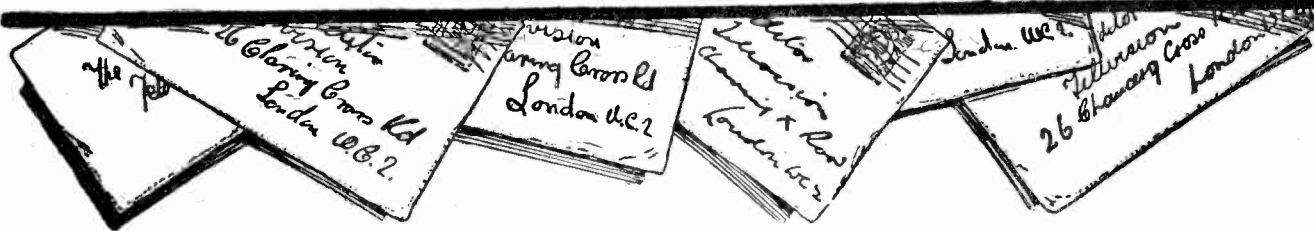 The Tele
Editor
vision
26 Charing Cross Rd
London W.C.2.
vision
aring Cross Rd
London W.C.2
Editor
Television
Charing X Road
London WC2
London. W.C.2.
Editor
Television
26 Chancerg Cross
London